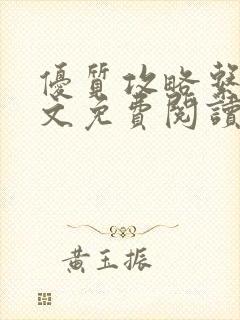 優質攻略繫
文免費閱讀
黃玉振